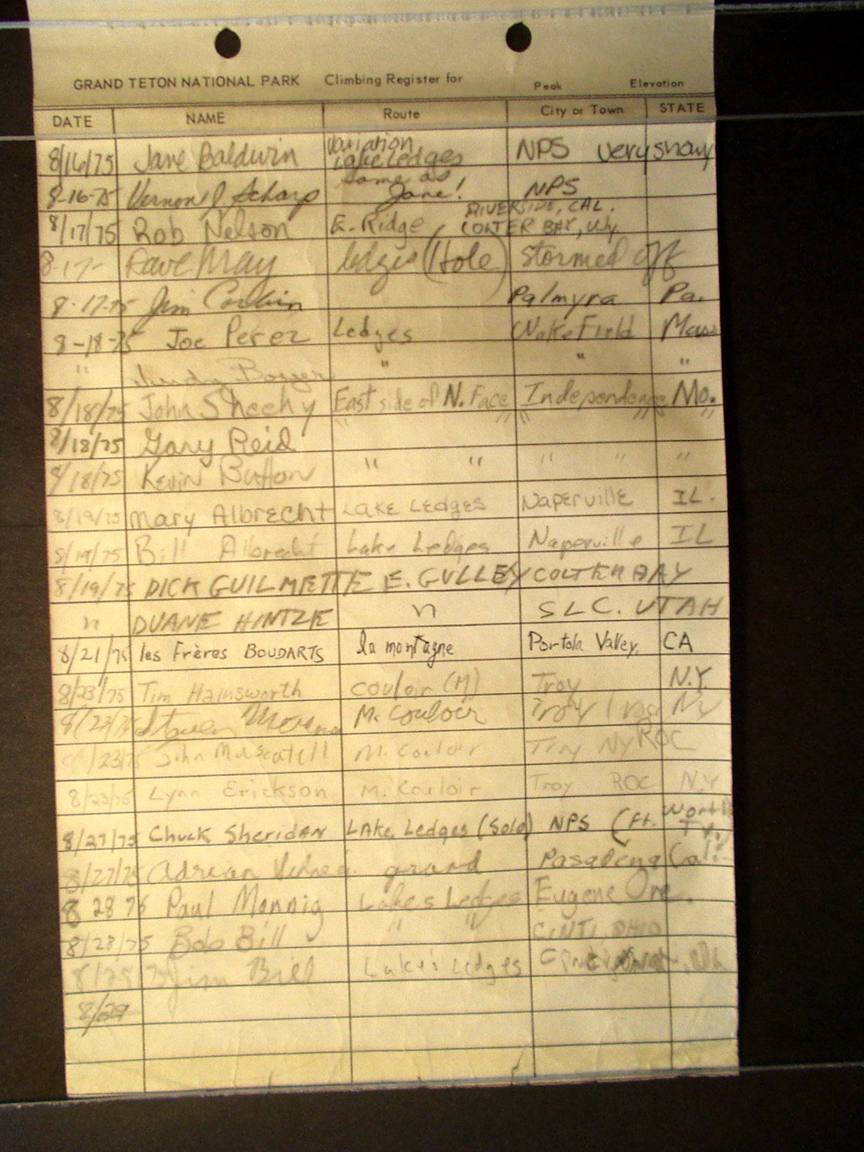 GRAND TETON NATIONAL PARK Climbing Register for Peak Elevation
DATE NAME Route City or Town STATE
8/16/75 Jane Baldwin Variation Lake Ledges NPS very snowy
8-16-75 Vernon J Scharp same as Jane! NPS
8/17/75 Rob Nelson E. Ridge RIVERSIDE, CAL. COLTER BAY, Wy.
8-17- Dave May ledges (Hole) stormed off
8-17-75 Jim Palmyra Pa.
8-18-75 Joe Perez Ledges Wakefield Mass
" " " "
8/18/75 John Sheehy East side of N. Face Independence Mo.
8/18/75 Gary Reid " " " " "
8/18/75 Kevin Button " " " " "
8/19/75 Mary Albrecht LAKE LEDGES Naperville IL.
8/19/75 Bill Albrecht Lake Ledges Naperville IL
8/19/75 DICK GUILMETTE E. GULLEY COLTER BAY
" DUANE HINTZE " SLC. UTAH
8/21/75 les Frères BOUDARTS la montagne Portola Valley, CA
8/23/75 Tim Hainsworth couloir (M) Troy N.Y.
8/23/75 M. Couloir Troy NY
8/23/75 John Muscatell M. Couloir Troy NY ROC
8/23/75 Lynn Erickson M. Couloir Troy ROC N.Y
8/27/75 Chuck Sheridan LAke Ledges (Solo) NPS (Ft. Worth TX.)
8/27/75 Adrian grand Pasadena Cal.
8 28 75 Paul Monnig Lakes Ledges Eugene Ore.
8/28/75 Bob Bill " " CINTI. OHIO
8/28/75 Jim Bill Lake's ledges
8/29